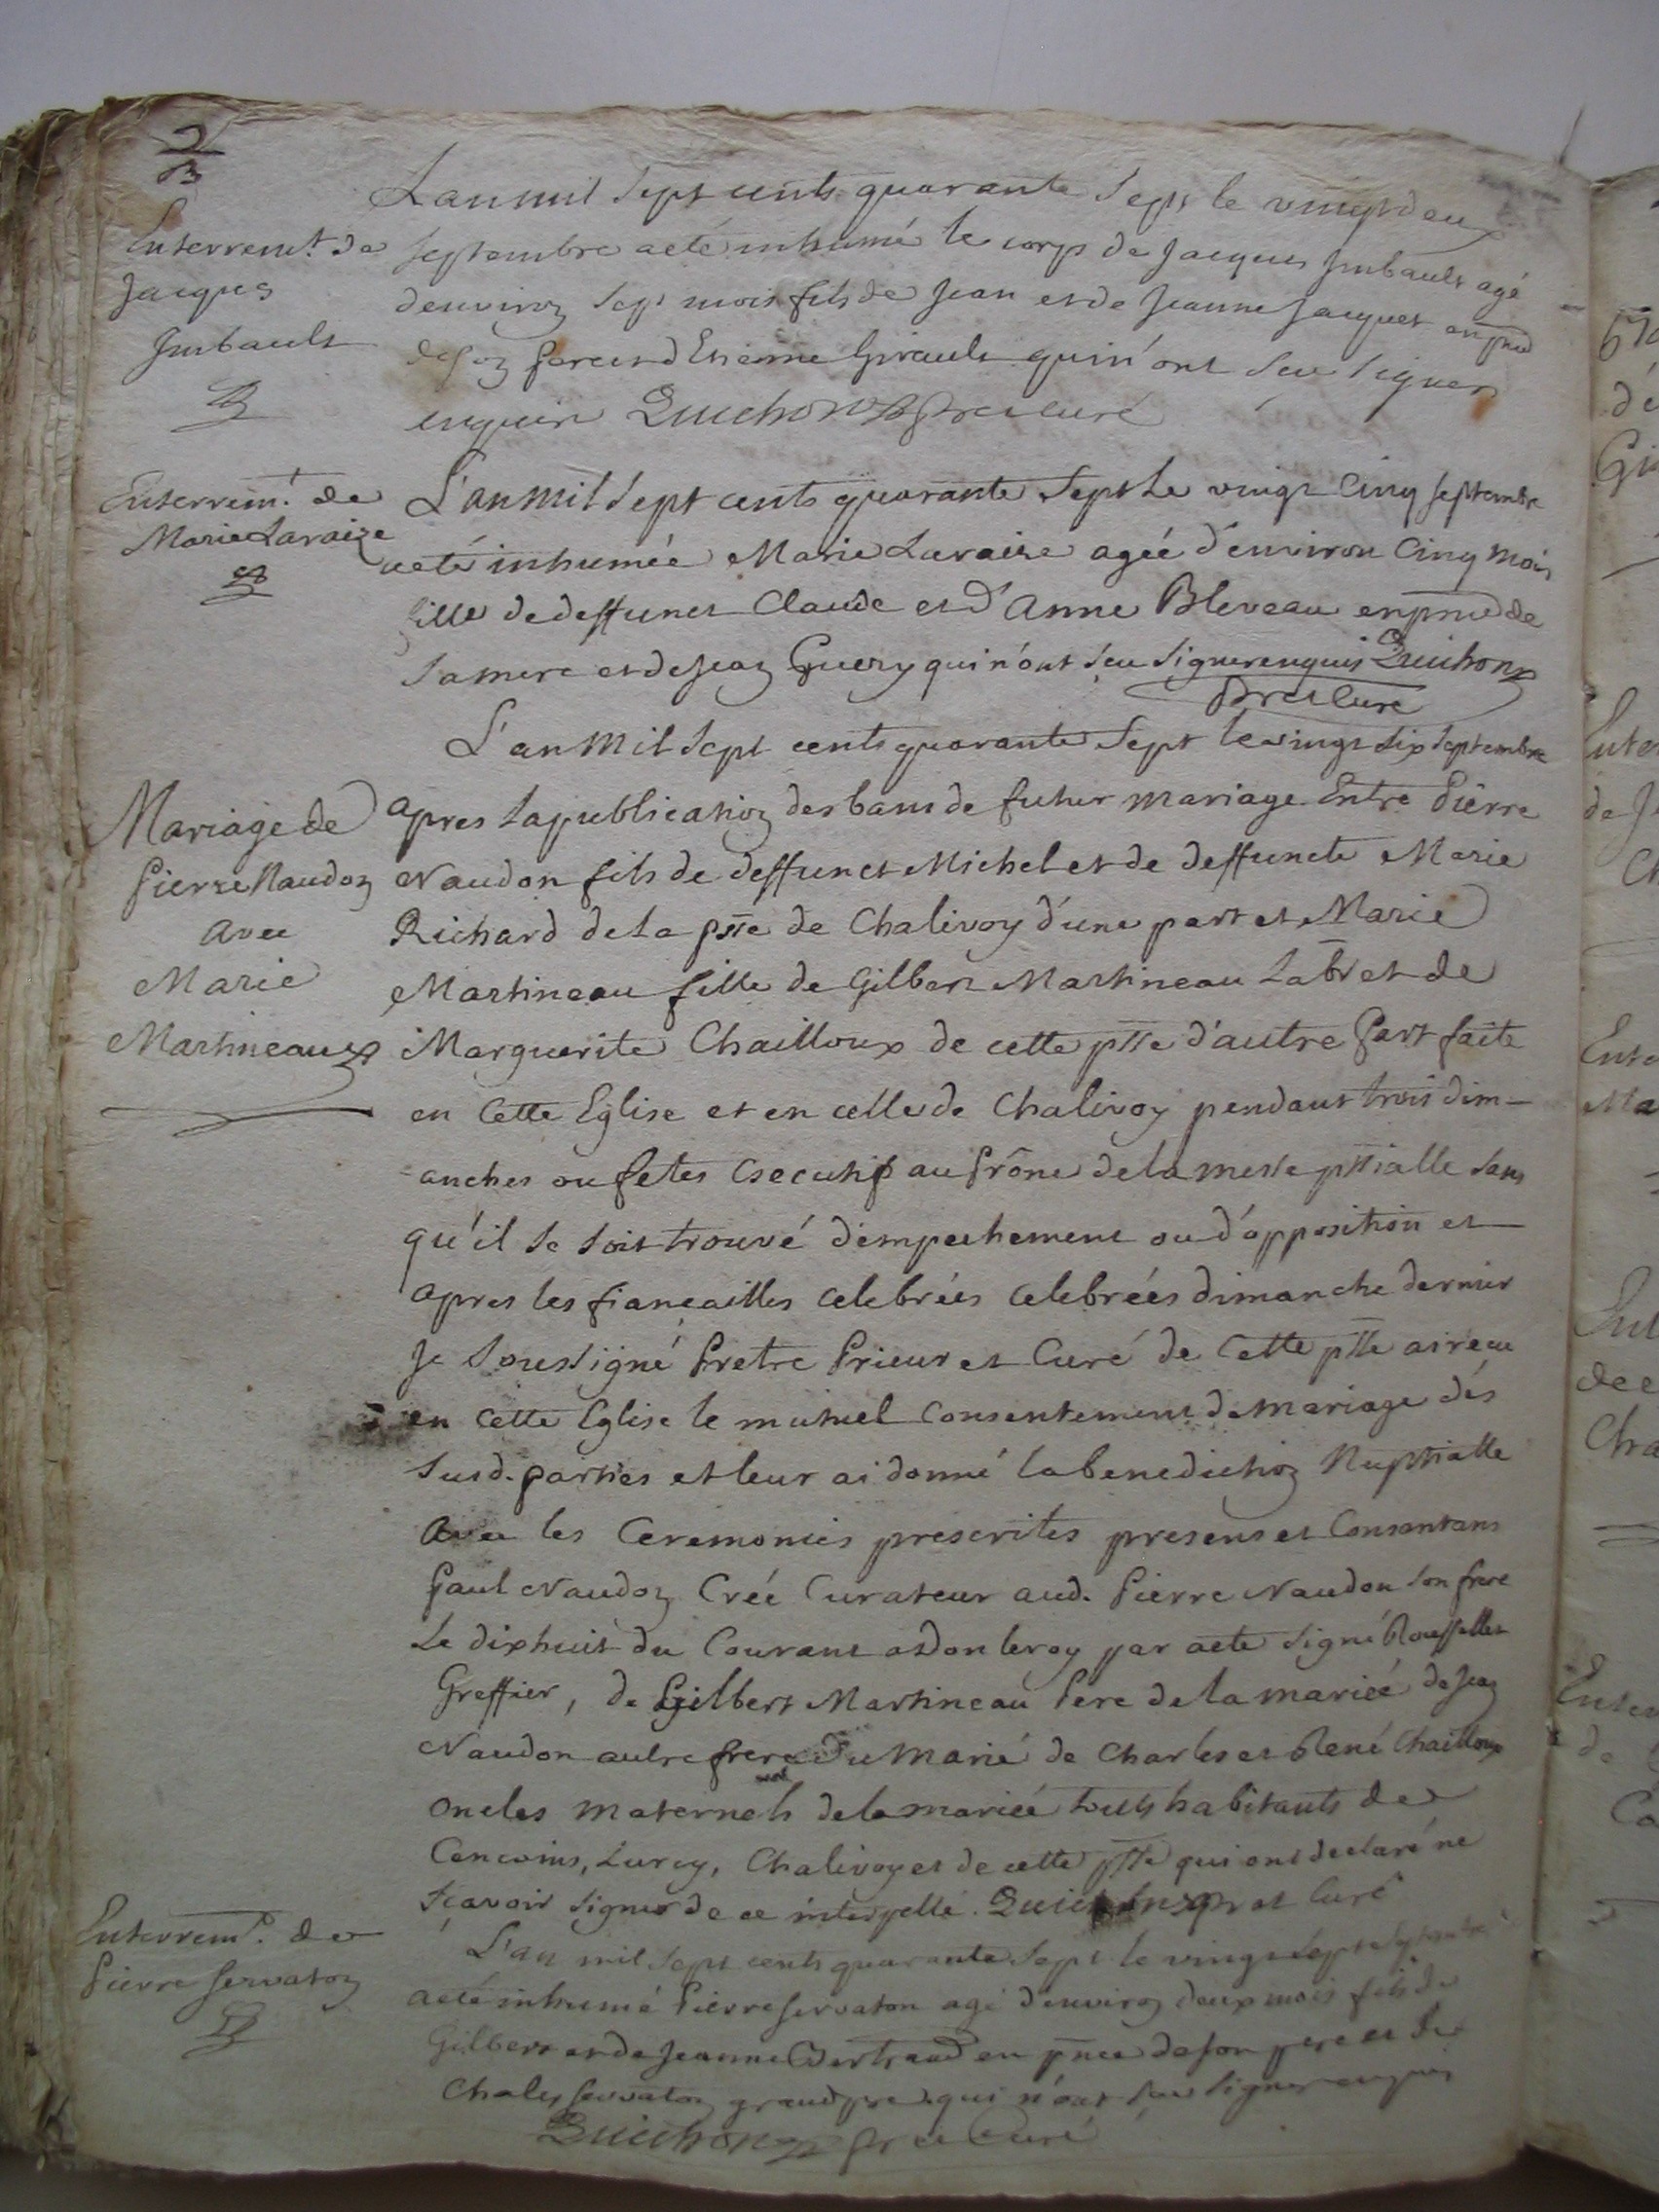 Enterrem.t de
Jacques
Imbault
L'an mil sept cents quarante sept le vingt deux
septembre a eté inhumé le corps de Jacques Imbault agé
d'environ sept mois fils de Jean et de Jeanne Jacquet en pnce
de son pere et d'Etienne Girault qui n'ont sceu signer
enquis Quichon pr et curé
Enterrem.t de
Marie Lavaize
L'an mil sept cents quarante sept le vingt cinq septembre
a eté inhumée Marie Lavaize agée d'environ cinq mois
fille de deffunct Claude et d'Anne Bleveau en pnce de
sa mere et de Jean Guery qui n'ont sceu signer enquis Quichon
pr et curé
Mariage de
Pierre Naudon
avec
Marie
Martineau
L'an mil sept cents quarante sept le vingt six septembre
apres la publication des bans de futur mariage Entre Pierre
Naudon fils de deffunct Michel et de deffuncte Marie
Richard de la psse de Chalivoy d'une part et Marie
Martineau fille de Gilbert Martineau Labr et de
Marguerite Chailloux de cette psse d'autre part faite
en cette Eglise et en celle de Chalivoy pendant trois dim-
anches ou fetes csecutifs au prône de la messe pssialle sans
qu'il se soit trouvé d'empechement ou d'opposition et
apres les fiançailles celebrées celebrées dimanche dernier
Je soussigné Pretre Prieur et Curé de cette psse ai recu
en cette Eglise le mutuel consentement de mariage dés
susd. parties et leur ai donné la benediction Nuptialle
avec les Ceremonies prescrites presens et Consentans
Paul Naudon Créé Curateur aud. Pierre Naudon son frere
Le dixhuit du Courant a Donleroy par acte signé Rousselet
Greffier, de Gilbert Martineau Pere de la mariée de Jean
Naudon autre frere du Marié de Charles et René Chailloux
oncles maternels de la mariée touts habitants de
Cencoins, Lurcy, Chalivoy et de cette psse qui ont declaré ne
scavoir signer de ce interpellé. Quichon pr et Curé
Enterrem.t de
Pierre Servaton
L'an mil sept cents quarante sept le vingt sept septembre
a eté inhumé Pierre Servaton agé d'environ deux mois fils de
Gilbert et de Jeanne Bertrand en pnce de son pere et de
Charles Servaton grand pere qui n'ont sceu signer enquis
Quichon pr et Curé